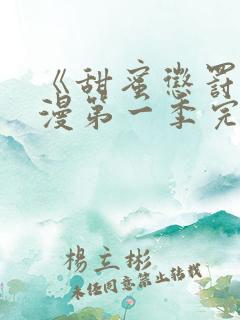 《甜蜜惩罚
漫第一季完
杨立彬
未经同意禁止转载